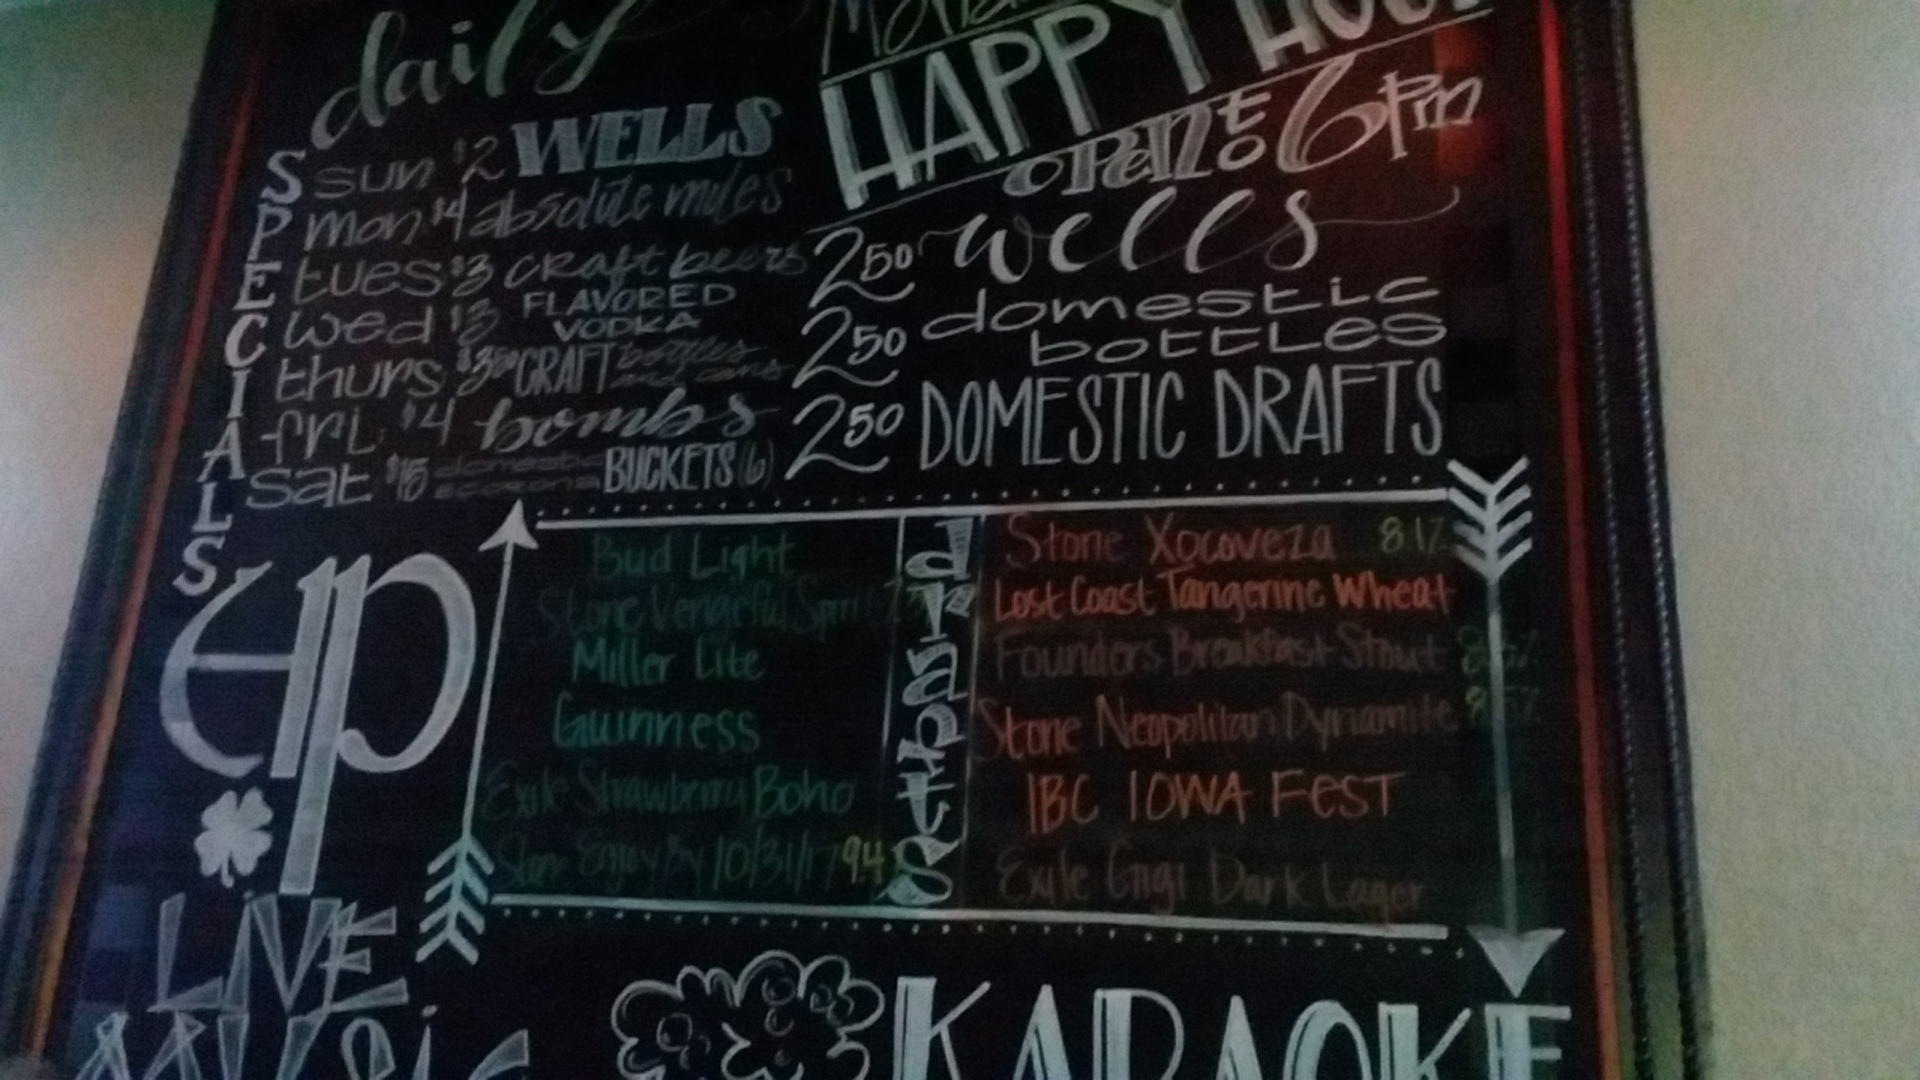 daily
SPECIALS
sun $2 WELLS
mon $4 absolute mules
tues $3 craft beers
wed $3 FLAVORED VODKA
thurs $350 CRAFT bottles and cans
fri $4 bombs
sat $15 domestic BUCKETS (6)
HAPPY HOUR
OPEN TO 6pm
250 wells
250 domestic bottles
250 DOMESTIC DRAFTS
EP
draughts
Bud Light
Stone Vengeful Spirit
Miller Lite
Guinness
Exile Strawberry Boho
Stone Enjoy By 10/31/17 9.4
Stone Xocoveza 8.1%
Lost Coast Tangerine Wheat
Founders Breakfast Stout
Stone Neopolitan Dynamite 8.5%
IBC IOWA FEST
Exile Gigi Dark Lager
LIVE
MUSIC
KARAOKE